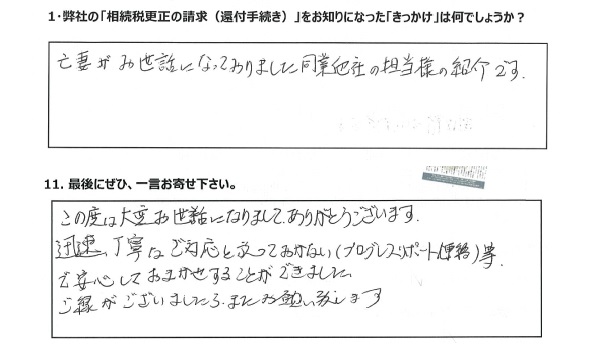 1・弊社の「相続税更正の請求(還付手続き)」をお知りになった「きっかけ」は何でしょうか?
亡妻がお世話になっておりました同業他社の担当様の紹介です.
11. 最後にぜひ、一言お寄せ下さい。
この度は大変お世話になりまして、ありがとうございます.
迅速、丁寧なご対応と放っておかない(プログレスリポート)等.
で安心しておまかせすることができました、
ご縁がございましたら、またお願い致します